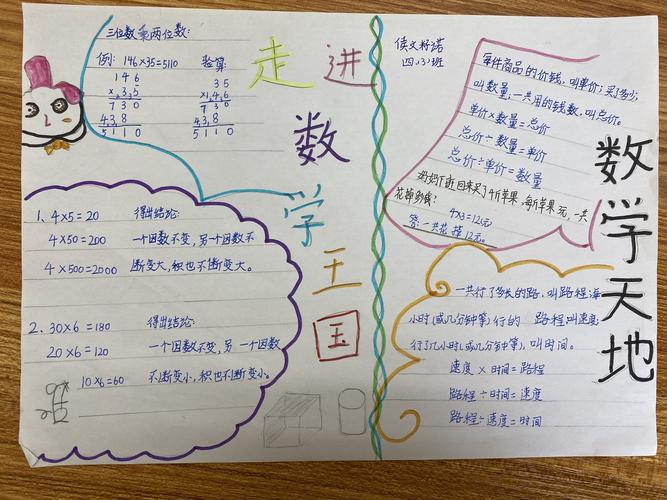 三位数乘两位数：
例：146×35=5110 验算：
146
×.3.5
730
438
5110
35
×1.4.6
438
5110
走进数学王国
1、4×5=20 得出结论：
4×50=200 一个因数不变，另一个因数不
4×500=2000 断变大，积也不断变大。
2、30×6=180 得出结论：
20×6=120 一个因数不变，另一个因数
10×6=60 不断变小，积也不断变小。
四.(3)班
每件商品的价钱，叫单价；买了多少，
叫数量；一共用的钱数，叫总价。
单价×数量=总价
总价÷数量=单价
总价÷单价=数量
奶奶下班回来买了4斤苹果，每斤苹果元，一共
花掉多钱？
4×3=12元
答：一共花掉12元。
一共行了多长的路，叫路程；每
小时（或几分钟等）行的 路程叫速度；
行了几小时（或几分钟等），叫时间。
速度×时间=路程
路程÷时间=速度
路程÷速度=时间
数学天地